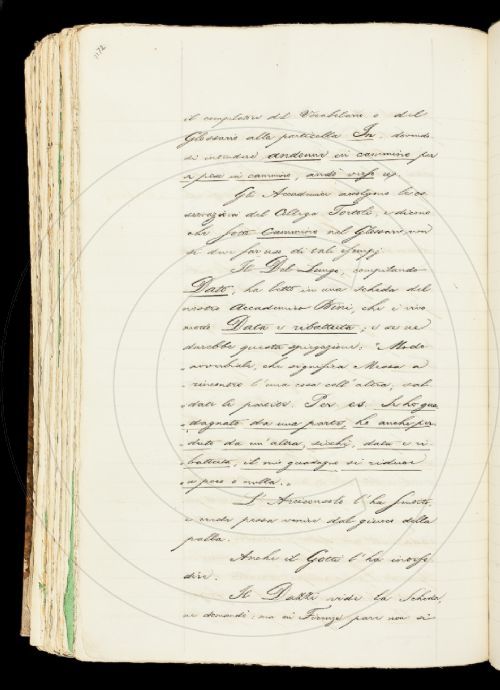 1172
il compilatore del Vocabolario o del
Glossario alla particella In, dovendo
si intendere andenar in cammino per
a per in cammino, andò verso
Gli Accademici accolgono le os
servazioni del Collega Tortoli, e dicono
che sotto Cammino nel Glossario non
si dee far uso di tali esempj.
Il Del Lungo, compilando
Dato, ha letto in una scheda del
nostro Accademico Bini, che è vivo
modo Data e ribattuta; e se ne
darebbe questa spiegazione: "Modo
avverbiale, che significa Messa a
riscontro l'una cosa coll'altra, sal
date le partite. Per es. In ho gua
dagnato da una parte, ho anche per
duto da un'altra, sicchè, data e ri
battuta, il mio guadagno si riduce
a poco o nulla."
L'Arciconsolo l'ha sentito,
e crede possa venire dal giuoco della
palla.
Anche il Gotti l'ha inteso
dire.
Il Dazzi vide la scheda,
ne domandò; ma in Firenze pare non si